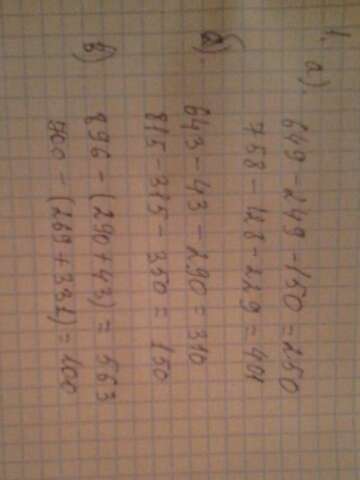 1. а).
649 - 249 - 150 = 250
758 - 128 - 229 = 401
б).
643 - 43 - 290 = 310
815 - 315 - 350 = 150
в)
896 - (290 + 43) = 563
700 - (269 + 331) = 100